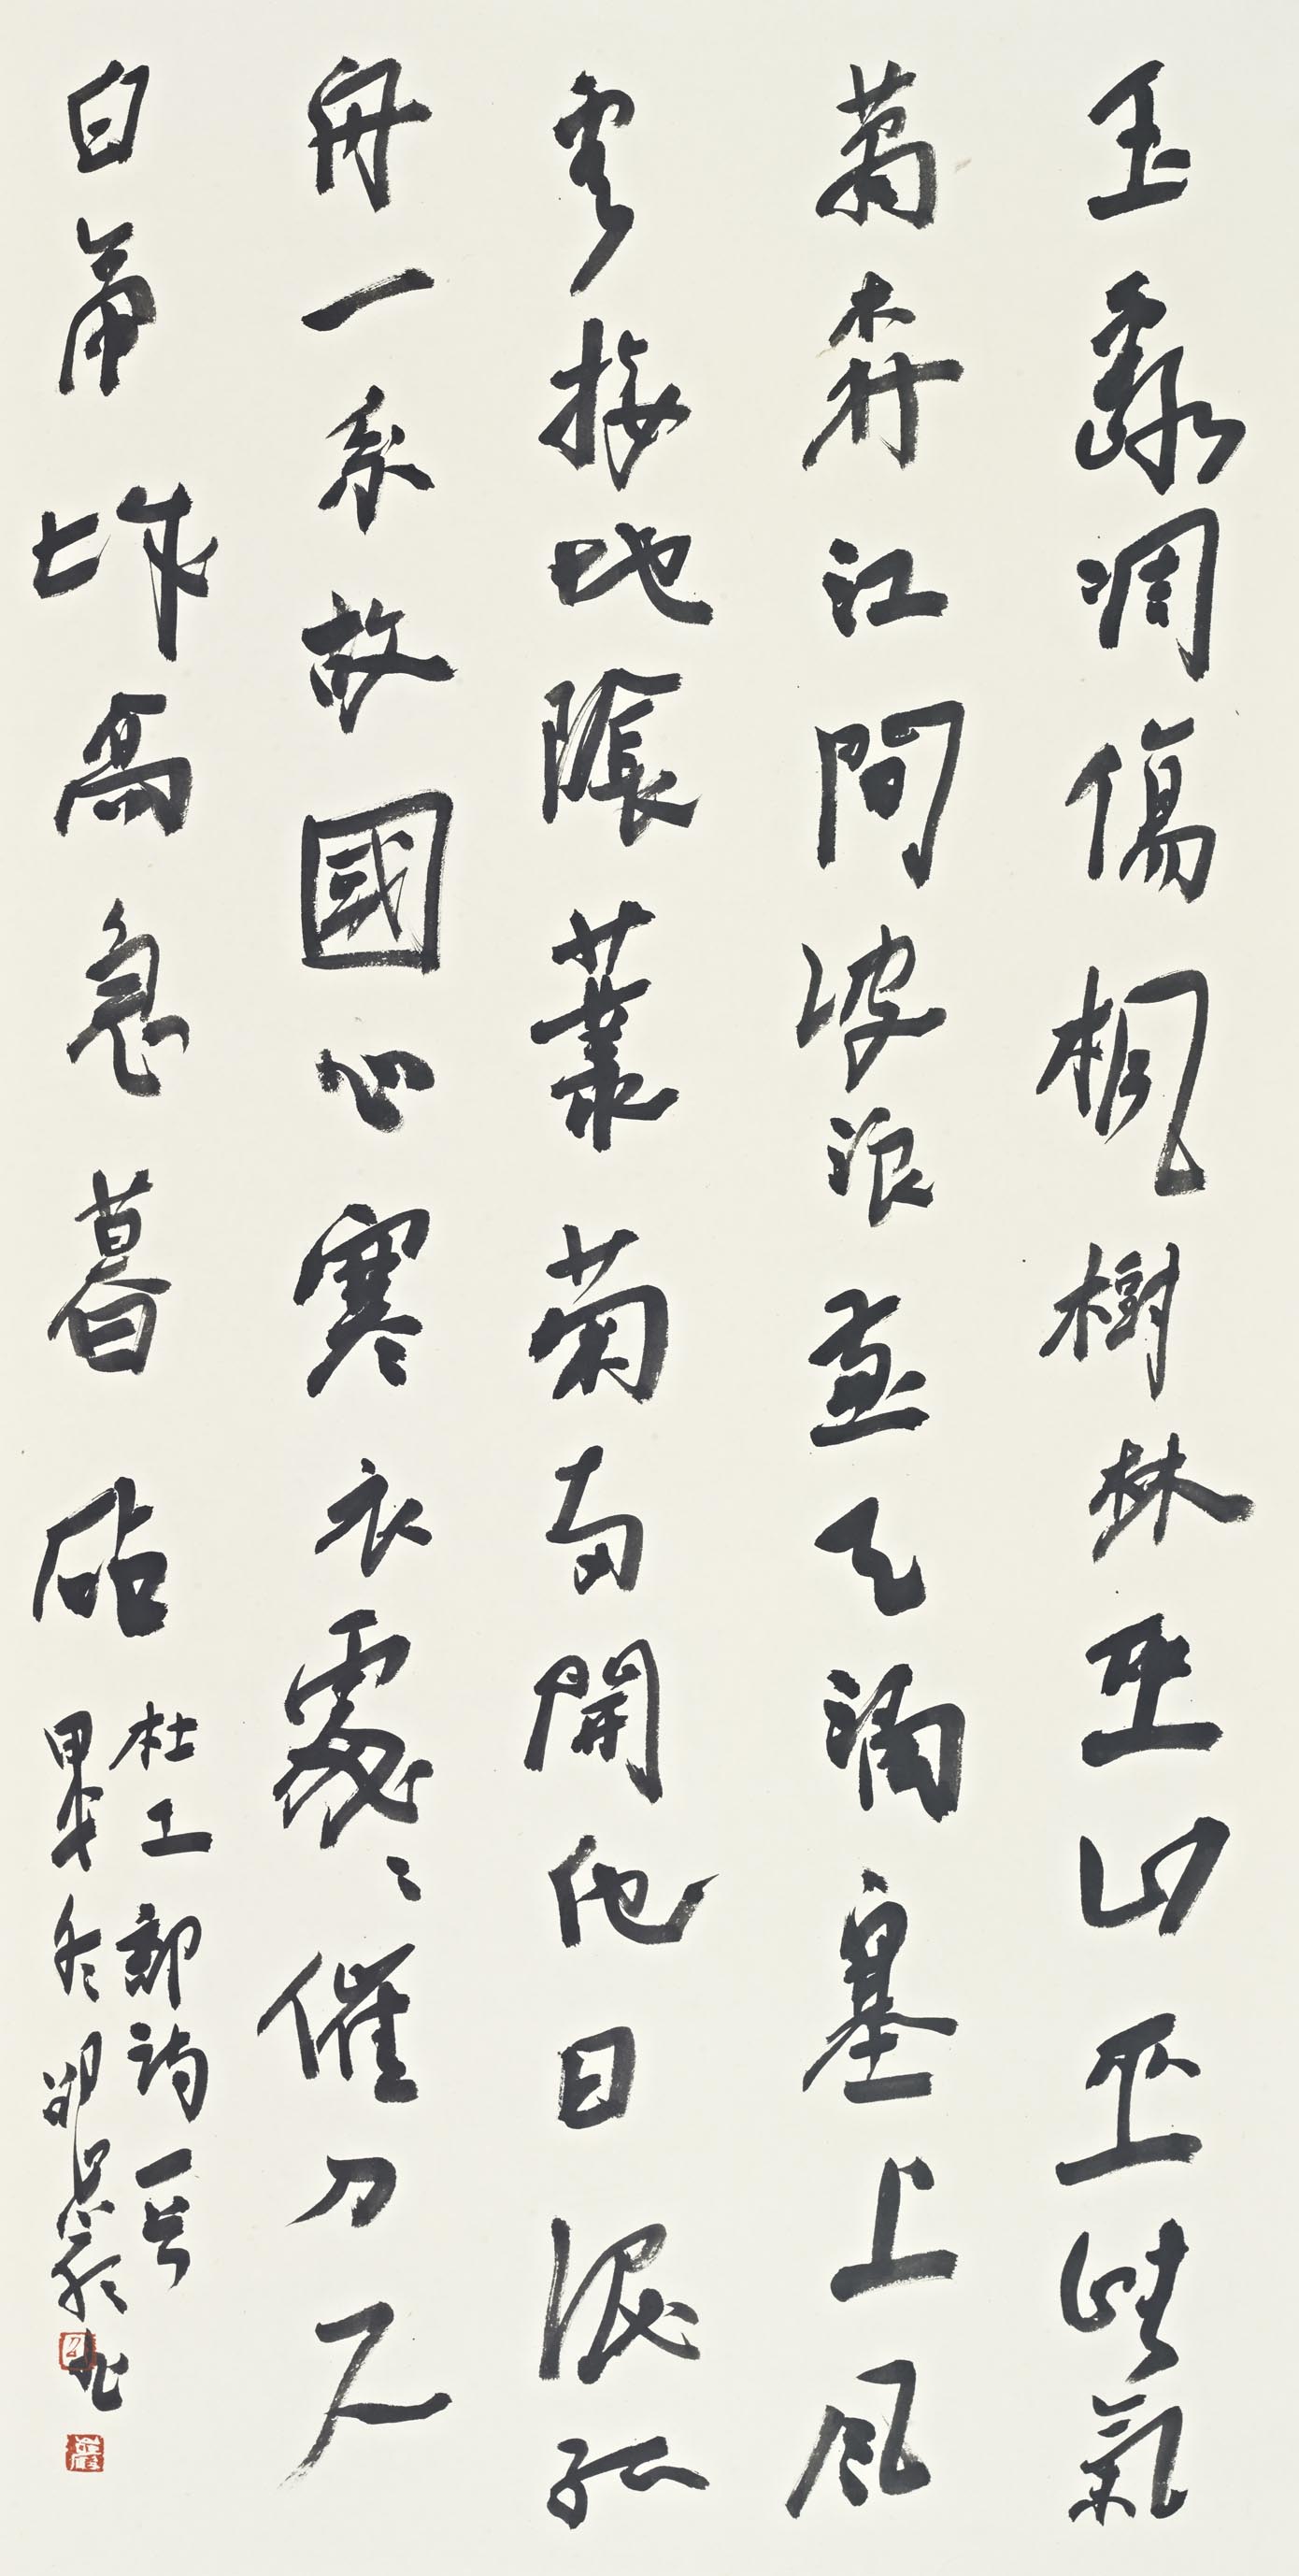 玉露凋傷楓樹林巫山巫峽氣
蕭森江間波浪兼天涌塞上風
雲接地陰叢菊兩開他日淚孤
舟一系故國心寒衣處〻催刀尺
白帝城高急暮砧
杜工部詩一首
冬